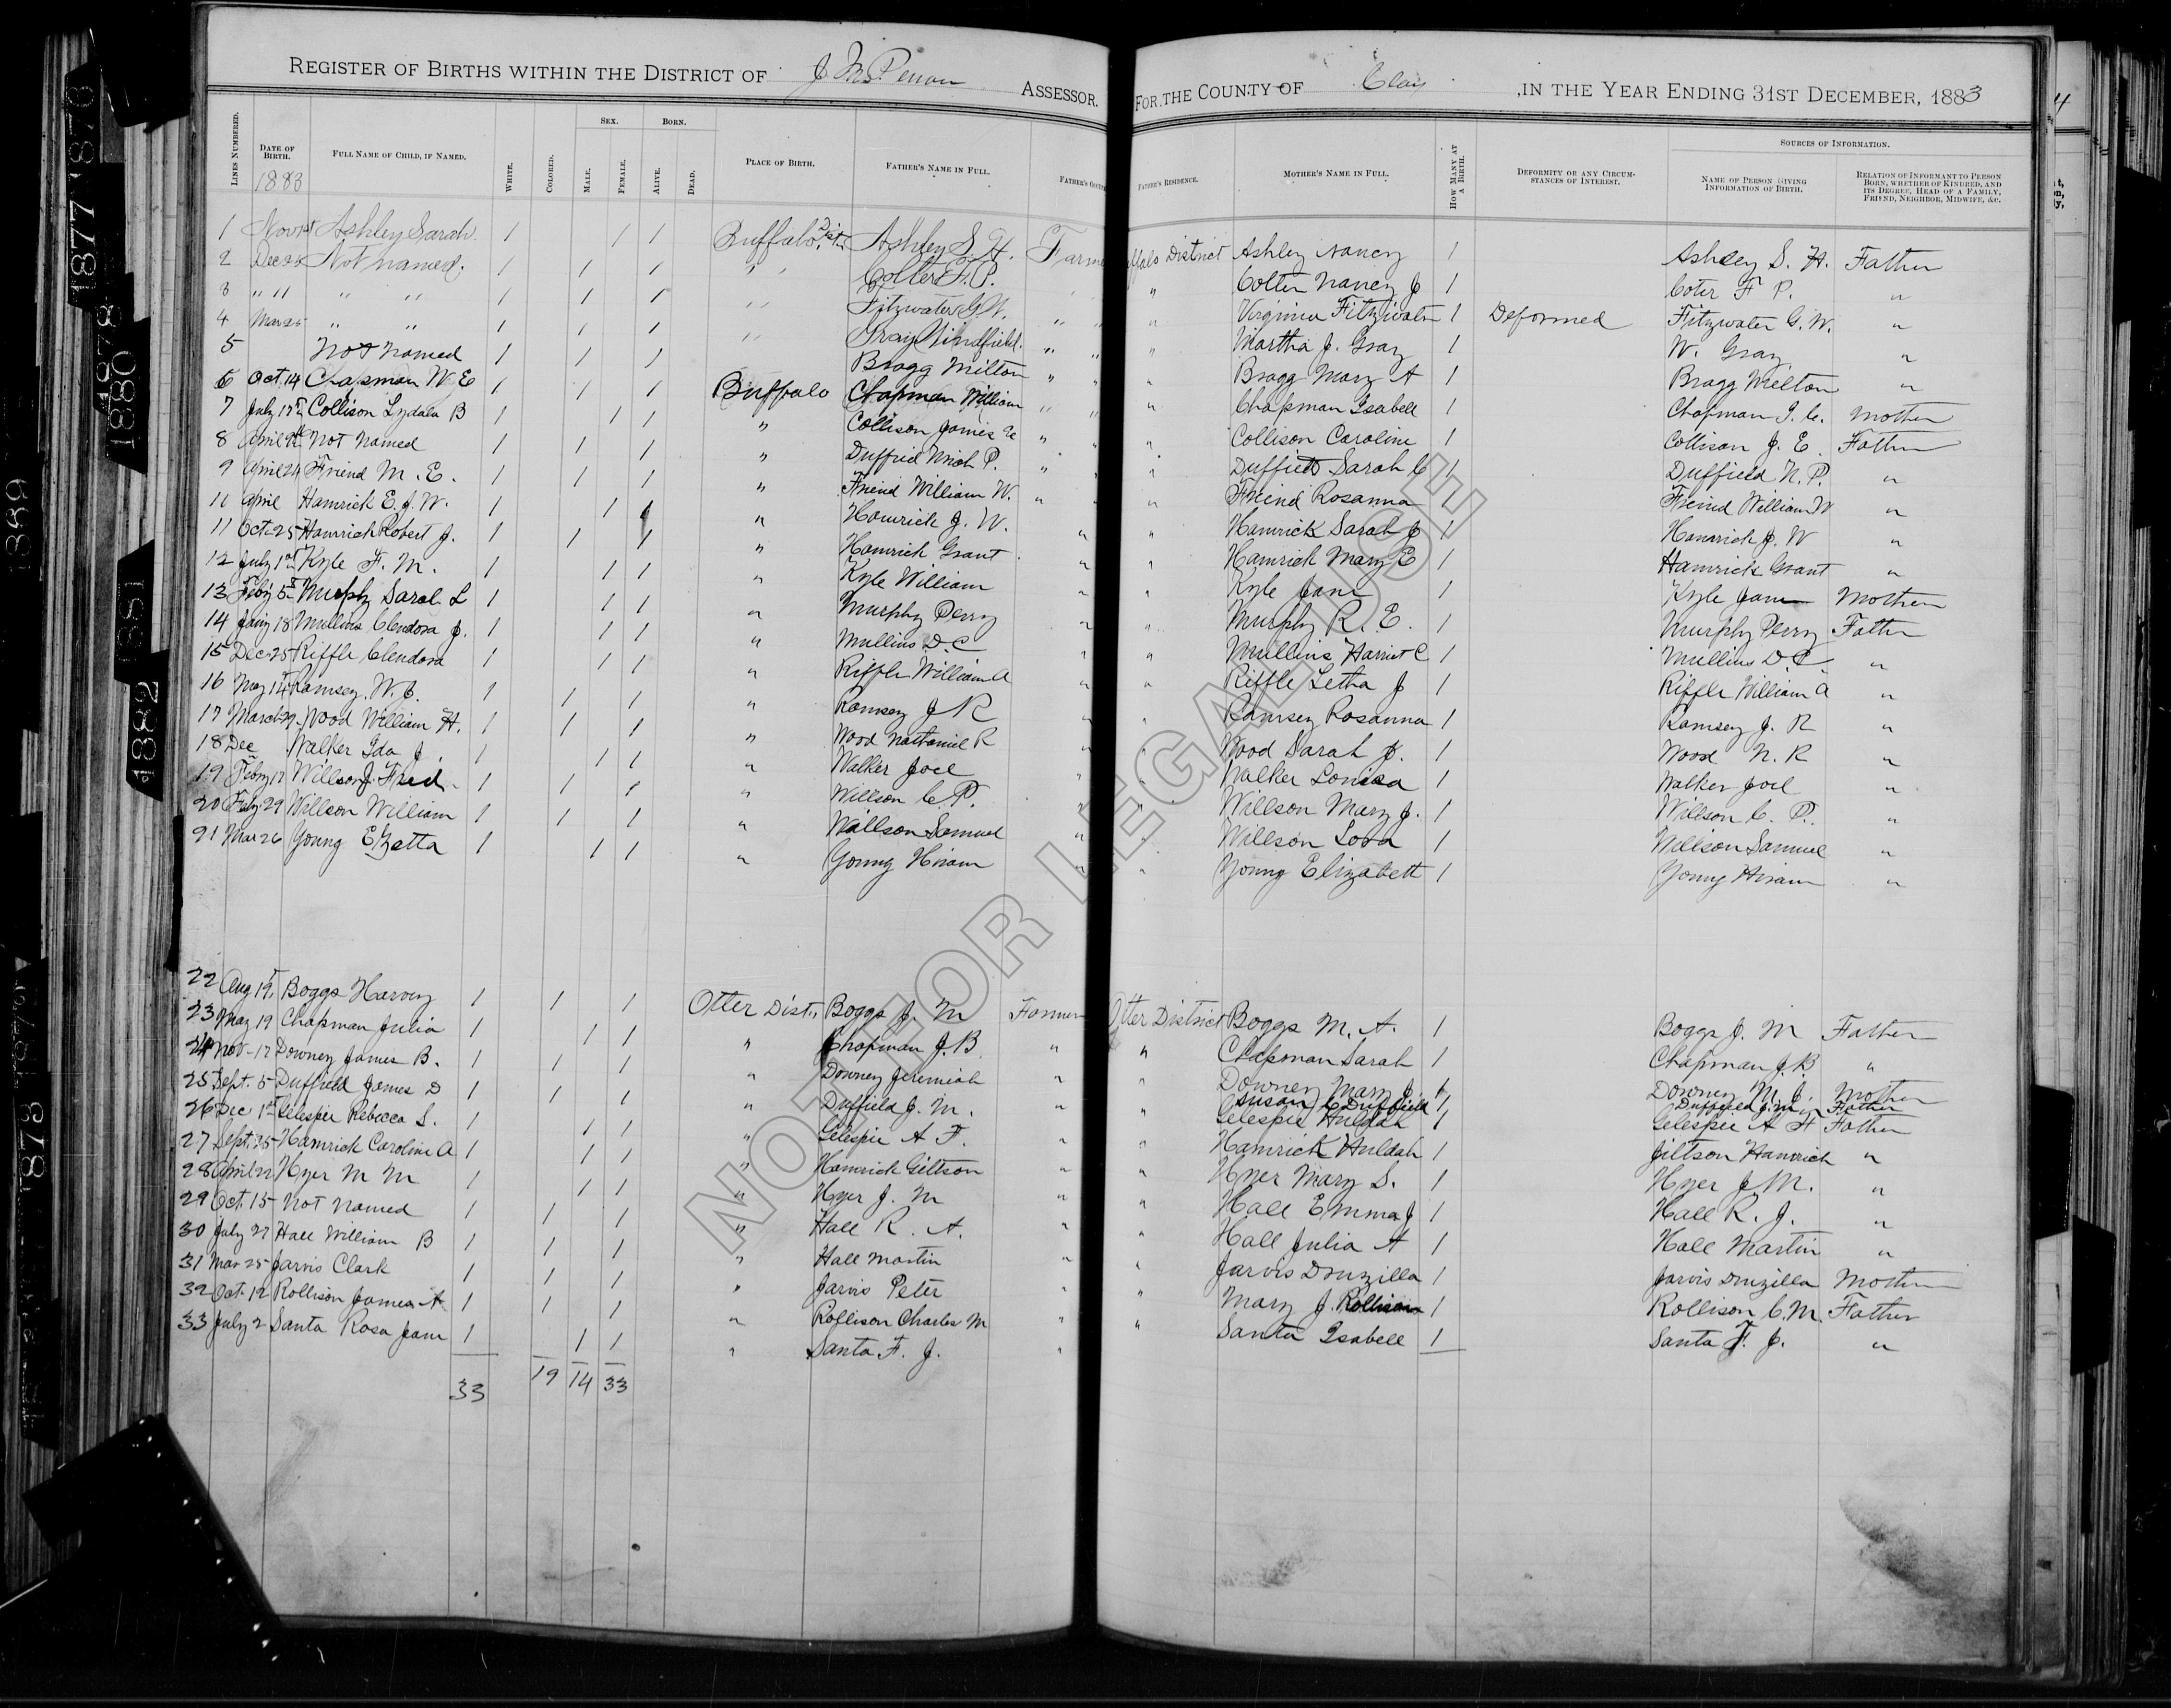 REGISTER OF BIRTHS WITHIN THE DISTRICT OF J. M. ASSESSOR. FOR THE COUNTY OF Clay, IN THE YEAR ENDING 31ST DECEMBER, 1883
LINES NUMBERED. DATE OF BIRTH. 1883 FULL NAME OF CHILD, IF NAMED. WHITE. COLORED. SEX. MALE. FEMALE. BORN. ALIVE. DEAD. PLACE OF BIRTH. FATHER'S NAME IN FULL. FATHER'S RESIDENCE. MOTHER'S NAME IN FULL. HOW MANY AT A BIRTH. DEFORMITY OR ANY CIRCUMSTANCES OF INTEREST. SOURCES OF INFORMATION. NAME OF PERSON GIVING INFORMATION OF BIRTH. RELATION OF INFORMANT TO PERSON BORN, WHETHER OF KINDRED, AND ITS DEGREE, HEAD OF A FAMILY, FRIEND, NEIGHBOR, MIDWIFE, &C.
1 Ashley Sarah 1 1 1 Buffalo Dist. Ashley S. H. Farme ffalo District Ashley Nancy 1 Ashley S. H. Father
2 Dec 25 Not named. 1 1 1 " " Colter F. P. " Colter Nancy J 1 Coter F P. "
3 " " " " 1 1 1 " " Fitzwater G W. " " " Virginia Fitzwater 1 Deformed Fitzwater G. W. "
4 Mar 25 " " 1 1 1 " " Gray Windfield. " " " Martha J. Gray 1 W. Gray "
5 Not Named 1 1 1 Bragg Milton " " " Bragg Mary A 1 Bragg Melton "
6 Oct. 14 Chapman W E 1 1 1 Buffalo Chapman William " " " Chapman Isabell 1 Chapman I. C. Mother
7 July 17th Collison Lydala B 1 1 1 " Collison James E " " " Collison Caroline 1 Collison J. E. Father
8 April Not Named 1 1 1 " P. " " " Duffield Sarah C 1 Duffield N. P. "
9 April 24 Friend M. E. 1 1 1 " Friend William W. " " Friend Rosanna 1 Friend William W "
10 April Hamrick E. J. W. 1 1 1 " Hamrick J. W. " " Hamrick Sarah J 1 Hamrick J. W "
11 Oct-25 Hamrick Robert J. 1 1 1 " Hamrick Grant " " Hamrick Mary E 1 Hamrick Grant "
12 July 1st Kyle F. M. 1 1 1 " Kyle William " " Kyle Jane 1 Kyle Jane Mother
13 Feby 5th Murphy Sarah L 1 1 1 " Murphy Perry " " Murphy R. E. 1 Murphy Perry Father
14 Jany 18 Mullins Clendora J. 1 1 1 " Mullins D. C " " Mullins Harriet C 1 Mullins D. C "
15 Dec-25 Riffle Clendora 1 1 1 " Riffle William A " " Riffle Letha J 1 Riffle William A "
16 May 14 Ramsey W. C. 1 1 1 " Ramsey J R " " Ramsey Rosanna 1 Ramsey J. R "
17 March 29 Wood William H. 1 1 1 " Wood Nathaniel R " " Wood Sarah J. 1 Wood N. R "
18 Dec Walker Ida J. 1 1 1 " Walker Joel " " Walker Louisa 1 Walker Joel "
19 Febry 17 Willson J. Fred. 1 1 1 " Willson C. P. " " Willson Mary J. 1 Willson C. P. "
20 July 29 Willson William 1 1 1 " Willson Samuel " " Willson Lova 1 Willson Samuel "
21 Mar 26 Young EZetta 1 1 1 " Young Hiram " " Young Elizabeth 1 Young Hiram "
22 Aug 19. Boggs Harvey 1 1 1 Otter Dist. Boggs J. M Farmer Otter District Boggs M. A. 1 Boggs J. M Father
23 May 19 Chapman Julia 1 1 1 " Chapman J. B " " Chapman Sarah 1 Chapman J. B "
24 Nov-17 Downey James B. 1 1 1 " Downey Jeremiah " " Downey Mary J. 1 Downey M. J. Mother
25 Sept. 5 Duffield James D 1 1 1 " Duffield J. M. " " Susan C Duffield 1 Duffield J. M Father
26 Dec 1st Gelespie Rebecca S. 1 1 1 " Gelespie A F. " " Gelespie Huldah 1 Gelespie A F Father
27 Sept. 25 Hamrick Caroline A 1 1 1 " Hamrick Giltson " " Hamrick Huldah 1 Jiltson Hamrick "
28 April 22 Hyer M M 1 1 1 " Hyer J. M " " Hyer Mary S. 1 Hyer J M. "
29 Oct. 15 Not Named 1 1 1 " Hall R. A. " " Hall Emma J 1 Hall R. J. "
30 July 27 Hall William B 1 1 1 " Hall Martin " " Hall Julia A 1 Hall Martin "
31 Mar 25 Jarvis Clark 1 1 1 " Jarvis Peter " " Jarvis Druzilla 1 Jarvis Druzilla Mother
32 Oct. 12 Rollison James A 1 1 1 " Rollison Charles M " " Mary J. Rollison 1 Rollison C. M Father
33 July 2 Santa Rosa Jane 1 1 1 " Santa F. J. " " Santa Isabell 1 Santa F. J. "
33 19 14 33
NOT FOR LEGAL USE
1877
1878
1880
1881
1882